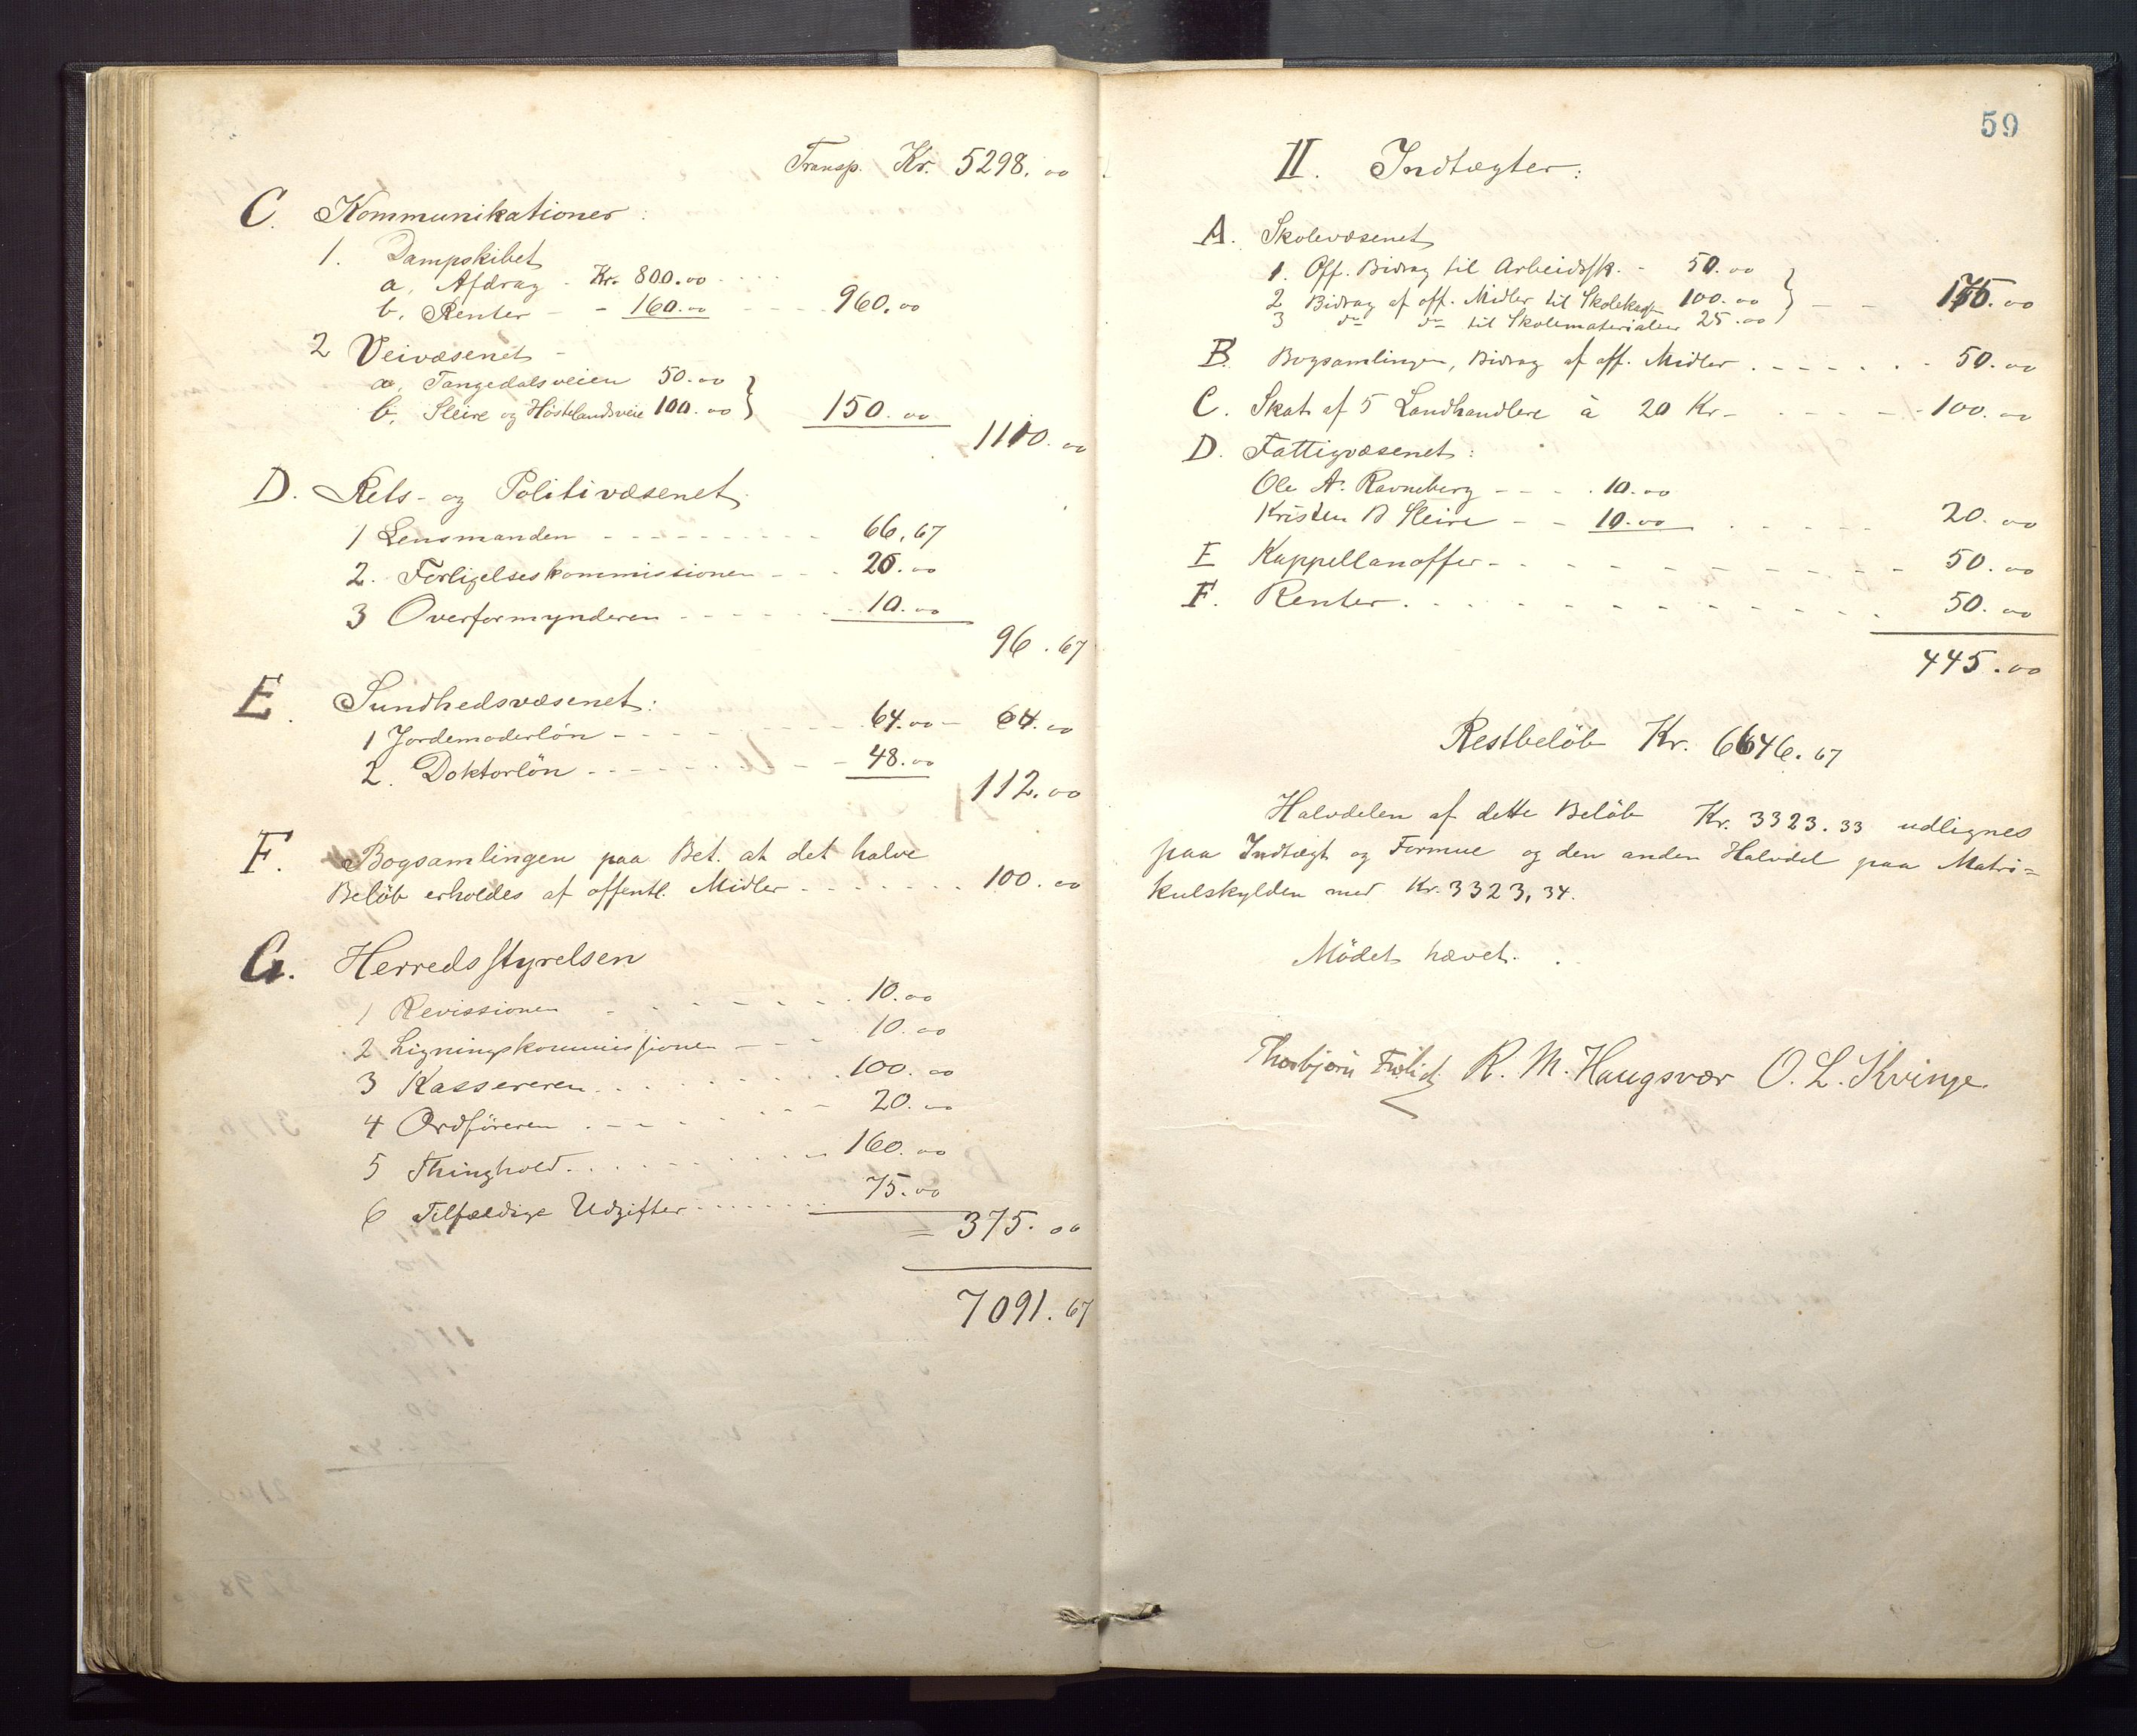 Transp. Kr. 5298.00
C. Kommunikationer:
1. Dampskibet
a, Afdrag - Kr. 800.00
b, Renter - - 160.00 - - - - 960.00
2 Veivæsenet -
a, Tangedalsveien 50.00
b, Sleire og Høstelandsveie 100.00 } 150.00
1110.00
D. Rets- og Politivæsenet
1 Lensmanden - - - - - - - - - 66,67
2. Forligelseskommissionen - - - 20.00
3 Overformynderen - - - - - - - 10.00
96.67
E. Sundhedsvæsenet:
1 Jordemoderlön - - - - - - - 64.00 - 64.00
2. Doktorlön - - - - - - - - 48.00
112.00
F. Bogsamlingen paa Bet. at det halve
Belöb erholdes af offentl. Midler - - - - - - - 100.00
G. Herredsstyrelsen
1 Revissionen - - - - - - 10.00
2 Ligningskommissionen - - - 10.00
3 Kassereren - - - - - - - 100.00
4 Ordföreren - - - - - - - 20.00
5 Thinghold - - - - - - - - 160.00
6 Tilfældige Udgifter - - - - - - 75.00
= 375.00
7091.67
59
II. Indtægter:
A. Skolevæsenet
1. Off. Bidrag til Arbeidssk. - 50.00
2 Bidrag af off. Midler til Skolekassen 100.00 } - - 175.00
3 do do til Skolematerialier 25.00
B. Bogsamlingen, Bidrag af off. Midler - - - - - - 50.00
C. Skat af 5 Landhandlere à 20 Kr - - - - - 100.00
D. Fattigvæsenet:
Ole A. Ravneberg - - - - 10.00
Kristen B Sleire - - 10.00 - - - - - 20.00
E Kappellanoffer - - - - - - - - - - 50.00
F. Renter - - - - - - - - - - - - 50.00
445.00
Restbelöb Kr. 6646.67
Halvdelen af dette Belöb Kr. 3323.33 udlignes
paa Indtægt og Formue og den anden Halvdel paa Matri=
kulskylden med Kr. 3323,34.
Mödet hævet.
Thorbjörn Frölich R. M. Haugsvær O. L. Kvinge